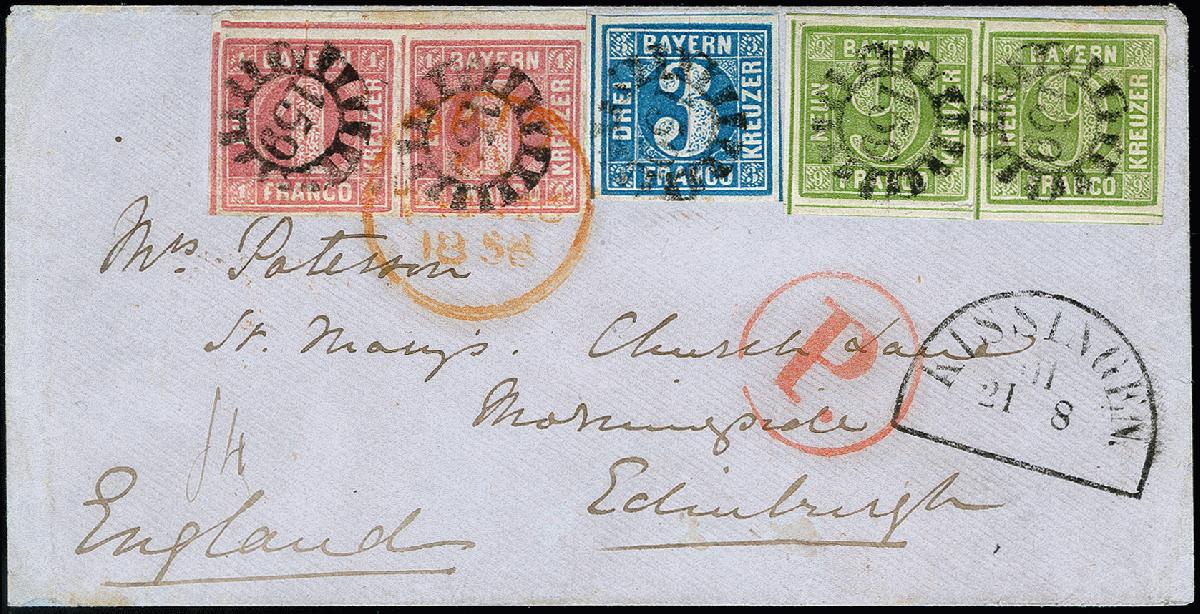 BAYERN BAYERN BAYERN BAYERN BAYERN
1 1 1 1 DREI 3 KREUZER NEUN 9 KREUZER NEUN 9 KREUZER
KREUZER
FRANCO FRANCO FRANCO FRANCO FRANCO
159
1858
Mrs. Paterson
St. Mary's. Church Lane
Morningside
Edinburgh
England
14
P.
KISSINGEN
21 8